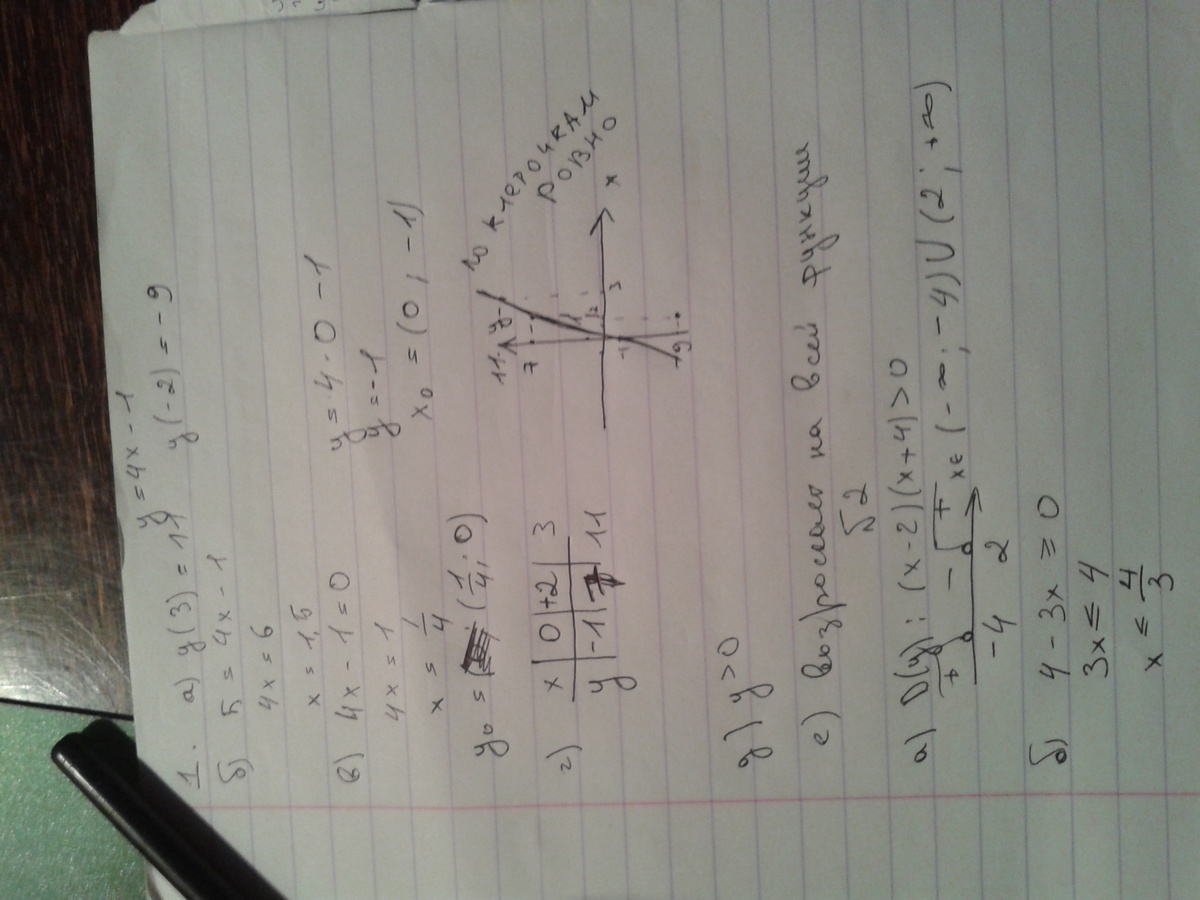 y = 4x - 1
1. а) y(3) = 11 y(-2) = -9
б) 5 = 4x - 1
4x = 6
x = 1,5
в) 4x - 1 = 0 y = 4 · 0 - 1
4x = 1 y = -1
x = 1/4 x₀ = (0 ; -1)
y₀ = (1/4 ; 0)
г) x | 0 | +2 | 3
y | -1 | 7 | 11
11 y
7
1
2 3 x
-1
-9
по клеточкам
ровно
д) y > 0
е) возросмаю на всей функции
№2
а) D(y) : (x - 2)(x + 4) > 0
+ - + x ∈ (-∞ ; -4) ∪ (2 ; +∞)
-4 2
б) 4 - 3x ≥ 0
3x ≤ 4
x ≤ 4/3